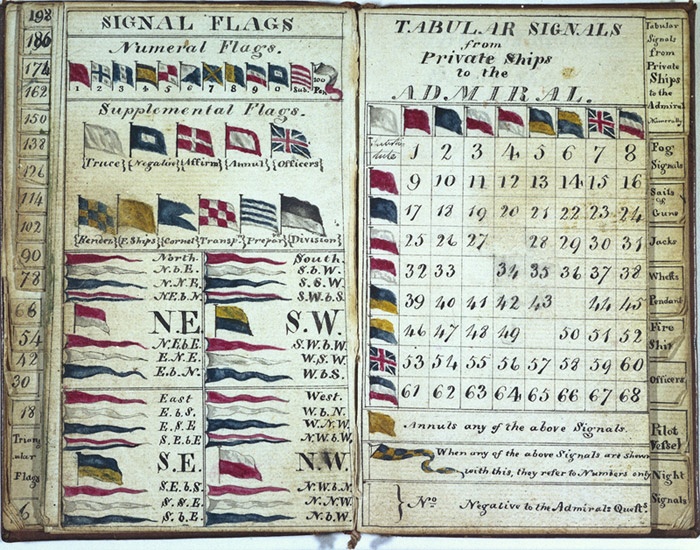 198
186
174
162
150
138
126
114
102
90
78
66
54
42
30
18
Trian
ular
Flags
6
SIGNAL FLAGS
Numeral Flags.
1 2 3 4 5 6 7 8 9 0 Sub.
100
Supplemental Flags.
Truce} {Negativ} {Affirm} {Annul} {Officers}
{Rendez} {P. Ships} {Cornet} {Transp.} {Prepar} {Division}
North.
N.b.E.
N.N.E.
N.E.b.N.
N.E.
N.E.b.E.
E.N.E.
E.b.N.
East
E.b.S.
E.S.E
S.E.b.E
S.E.
S.E.b.S.
S.S.E.
S.b.E.
South.
S.b.W.
S.S.W.
S.W.b.S.
S.W.
S.W.b.W.
W.S.W.
W.b.S.
West.
W.b.N.
W.N.W.
N.W.b.W.
N.W.
N.W.b.N.
N.N.W.
N.b.W.
TABULAR SIGNALS
from
Private Ships
to the
ADMIRAL.
1 2 3 4 5 6 7 8
9 10 11 12 13 14 15 16
17 18 19 20 21 22 23 24
25 26 27 28 29 30 31
32 33 34 35 36 37 38
39 40 41 42 43 44 45
46 47 48 49 50 51 52
53 54 55 56 57 58 59 60
61 62 63 64 65 66 67 68
Annuls any of the above Signals.
When any of the above Signals are shown
with this, they refer to Numbers only
} No Negative to the Admirals Quests.
Tabular
Signals
from
Private
Ships
to the
Admiral
Numerally
Fog
Signals
Sails
&
Guns
Jacks
Whefts
Pendant
Fire
Ship
Officers
Pilot
Vessel
Night
Signals